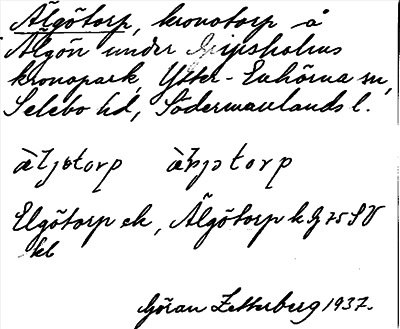 Älgötorp, kronotorp å
Älgön under Gripsholms
kronopark, Ytter-Enhörna sn,
Selebo hd, Södermanlands l.
Elgötorp ek, Älgötorp k G 75 SV
kbl
Göran Zetterberg 1937.